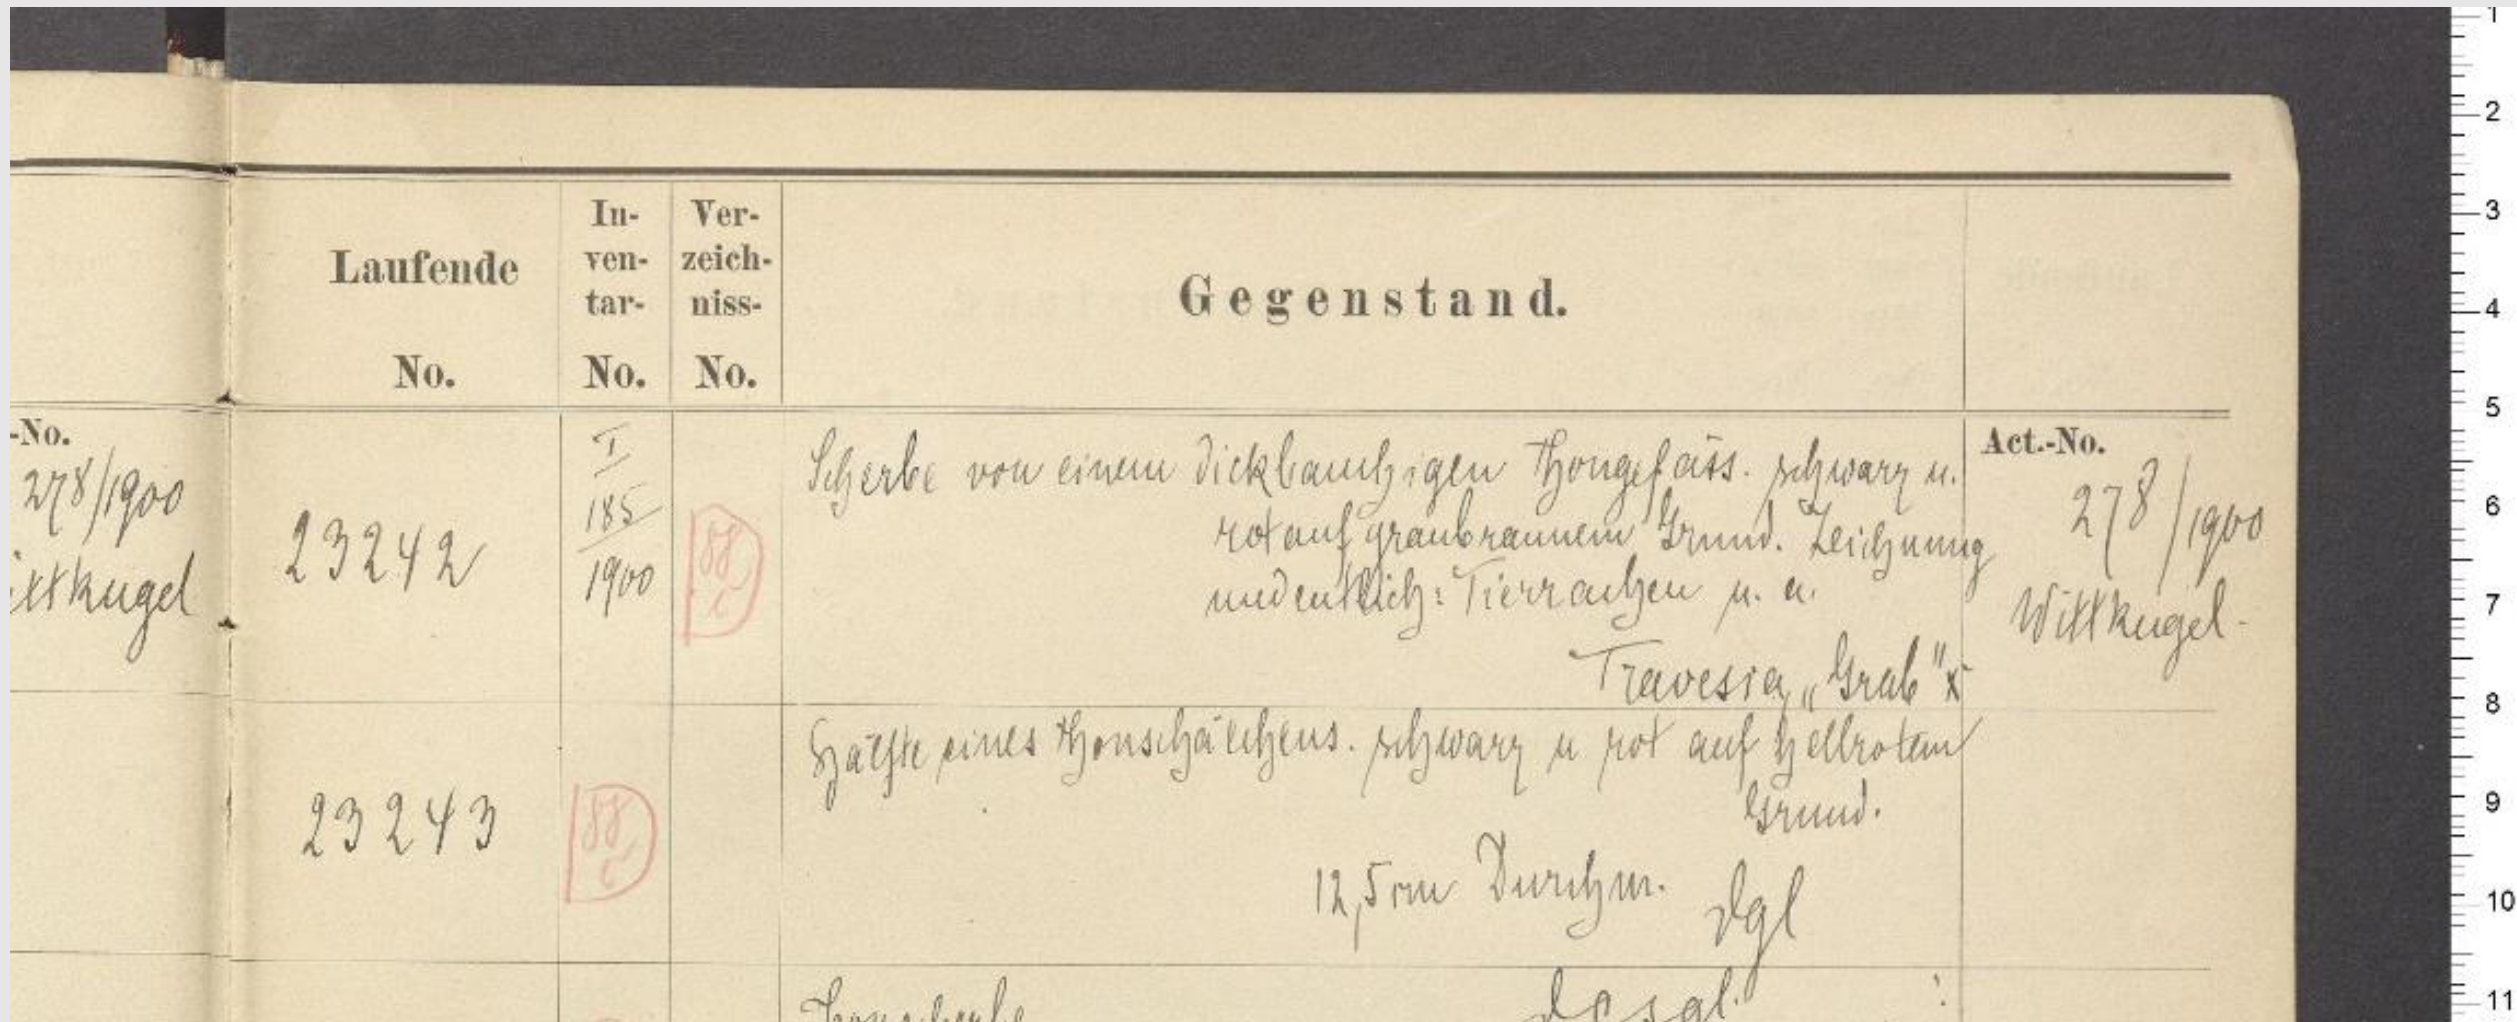 Laufende
No.
In-
ven-
tar-
No.
Ver-
zeich-
niss-
No.
Gegenstand.
-No.
278/1900
ittkugel
23242
I
185
1900
Scherbe von einem dickbauchigen Thongefäss. schwarz u.
rot auf graubraunem Grund. Zeichnung
undeutlich: Tierrachen u. a.
Travesia „Grab" x
Act.-No.
278/1900
Wittkugel.
23243
Hälfte eines Thonschälchens. schwarz u rot auf hellrotem
Grund.
12,5 cm Durchm.
dgl
Thonscherbe
desgl.
1
2
3
4
5
6
7
8
9
10
11